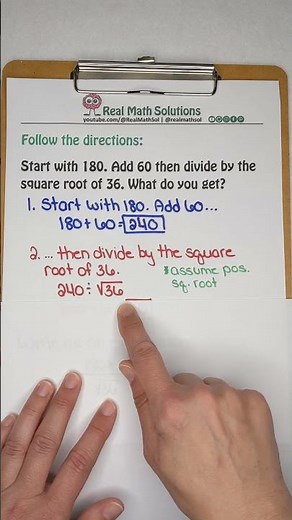 Real Math Solutions
youtube.com/@RealMathSol | @realmathsol
Follow the directions:
Start with 180. Add 60 then divide by the
square root of 36. What do you get?
1. Start with 180. Add 60...
180+60=240
2. ... then divide by the square
root of 36.
*assume pos.
sq. root
240÷√36